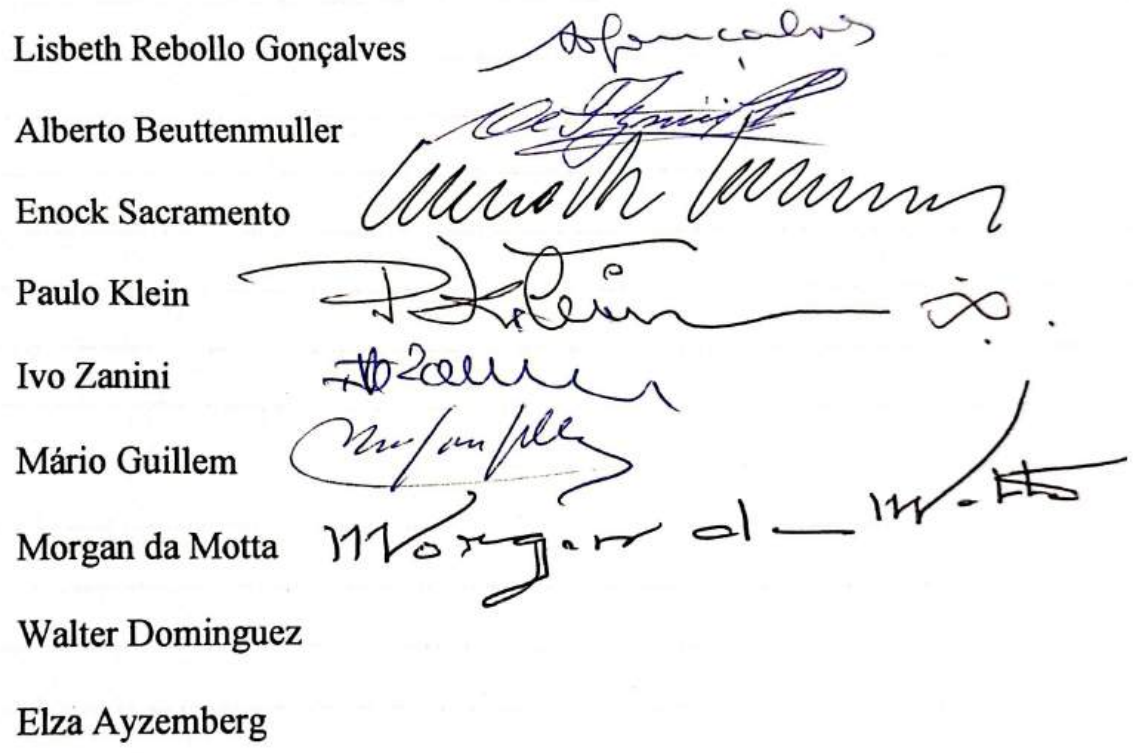 Lisbeth Rebollo Gonçalves
Alberto Beuttenmuller
Enock Sacramento
Paulo Klein P. Klein
Ivo Zanini
Mário Guillem
Morgan da Motta Morgan da Motta
Walter Dominguez
Elza Ayzemberg